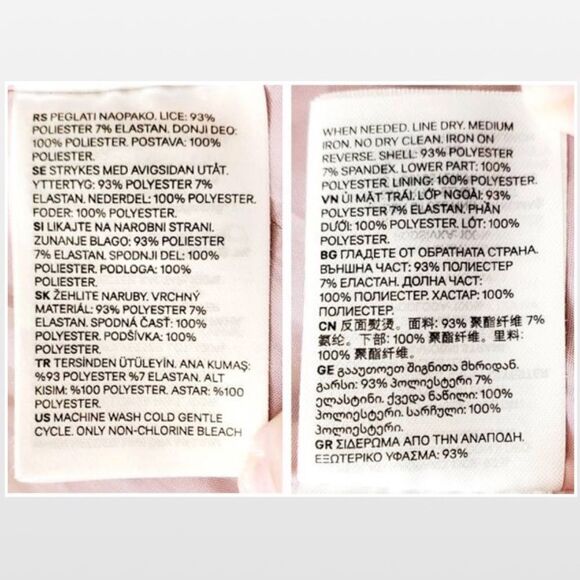 RS PEGLATI NAOPAKO. LICE: 93%
POLIESTER 7% ELASTAN. DONJI DEO:
100% POLIESTER. POSTAVA: 100%
POLIESTER.
SE STRYKES MED AVIGSIDAN UTÅT.
YTTERTYG: 93% POLYESTER 7%
ELASTAN. NEDERDEL: 100% POLYESTER.
FODER: 100% POLYESTER.
SI LIKAJTE NA NAROBNI STRANI.
ZUNANJE BLAGO: 93% POLIESTER
7% ELASTAN. SPODNJI DEL: 100%
POLIESTER. PODLOGA: 100%
POLIESTER.
SK ŽEHLITE NARUBY. VRCHNÝ
MATERIÁL: 93% POLYESTER 7%
ELASTAN. SPODNÁ ČASŤ: 100%
POLYESTER. PODŠÍVKA: 100%
POLYESTER.
TR TERSİNDEN ÜTÜLEYİN. ANA KUMAŞ:
%93 POLYESTER %7 ELASTAN. ALT
KISIM: %100 POLYESTER. ASTAR: %100
POLYESTER.
US MACHINE WASH COLD GENTLE
CYCLE. ONLY NON-CHLORINE BLEACH
WHEN NEEDED. LINE DRY. MEDIUM
IRON. NO DRY CLEAN. IRON ON
REVERSE. SHELL: 93% POLYESTER
7% SPANDEX. LOWER PART: 100%
POLYESTER. LINING: 100% POLYESTER.
VN ỦI MẶT TRÁI. LỚP NGOÀI: 93%
POLYESTER 7% ELASTAN. PHẦN
DƯỚI: 100% POLYESTER. LÓT: 100%
POLYESTER.
BG ГЛАДЕТЕ ОТ ОБРАТНАТА СТРАНА.
ВЪНШНА ЧАСТ: 93% ПОЛИЕСТЕР
7% ЕЛАСТАН. ДОЛНА ЧАСТ:
100% ПОЛИЕСТЕР. ХАСТАР: 100%
ПОЛИЕСТЕР.
CN 反面熨烫。面料: 93% 聚酯纤维 7%
氨纶。下部: 100% 聚酯纤维。里料:
100% 聚酯纤维。
GE გააუთოეთ შიგნითა მხრიდან.
გარსი: 93% პოლიესტერი 7%
ელასტინი. ქვედა ნაწილი: 100%
პოლიესტერი. სარჩული: 100%
პოლიესტერი.
GR ΣΙΔΕΡΩΜΑ ΑΠΟ ΤΗΝ ΑΝΑΠΟΔΗ.
ΕΞΩΤΕΡΙΚΟ ΥΦΑΣΜΑ: 93%